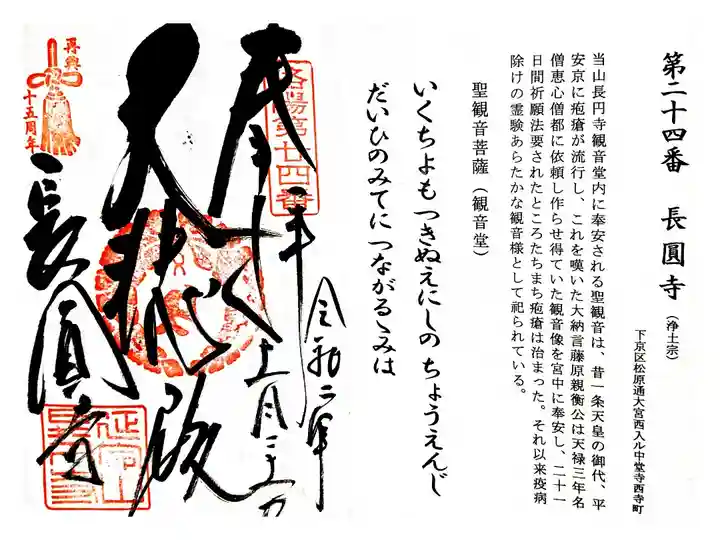 第二十四番 長圓寺（浄土宗）
下京区松原通大宮西入ル中堂寺西寺町
当山長円寺観音堂内に奉安される聖観音は、昔一条天皇の御代、平
安京に疱瘡が流行し、これを嘆いた大納言藤原親衡公は天禄三年名
僧恵心僧都に依頼し作らせ得ていた観音像を宮中に奉安し、二十一
日間祈願法要されたところたちまち疱瘡は治まった。それ以来疫病
除けの霊験あらたかな観音様として祀られている。
聖観音菩薩（観音堂）
いくちよもつきぬえにしの ちょうえんじ
だいひのみてに つながるゝみは
洛陽第廿四番
奉拝
令和二年
大悲殿
長圓寺
再興
十五周年